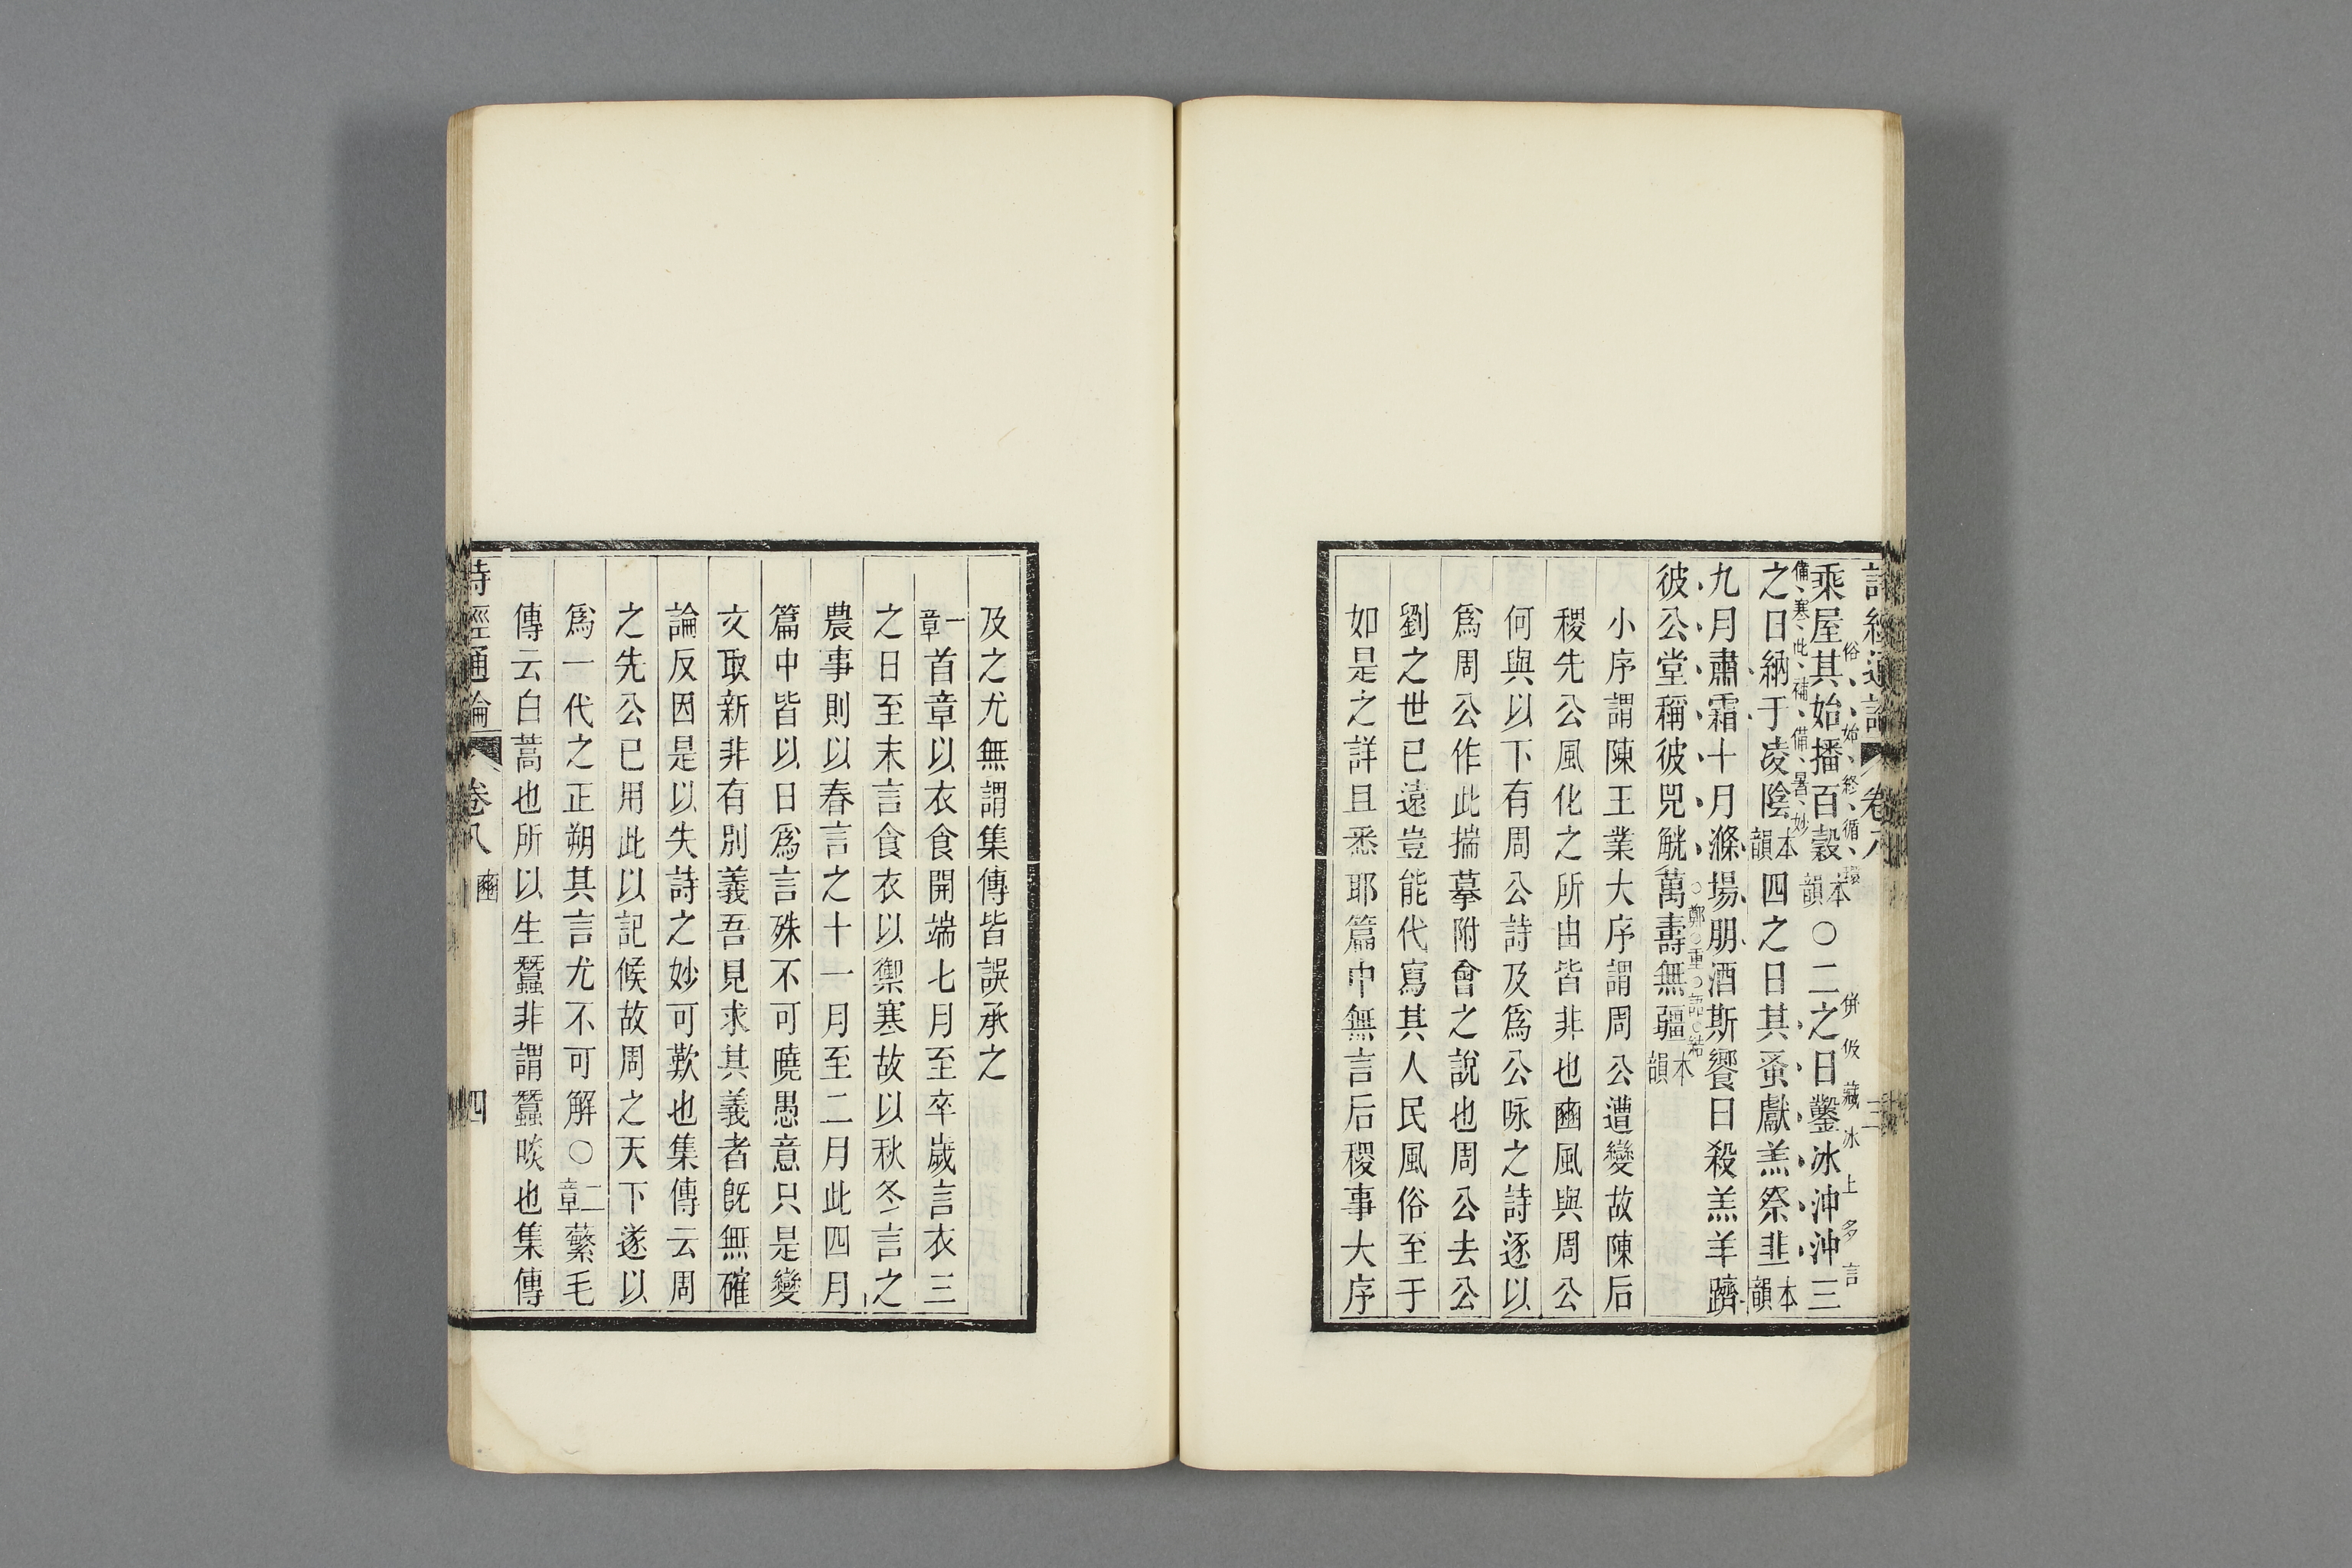 詩經通論 卷八 三
俗始終循環
乘屋其始播百穀本韻○二之日鑿冰沖沖三
併伋藏冰上多言
備寒此補備暑妙
之日納于凌陰本韻四之日其蚤獻羔祭韭本韻
九月肅霜十月滌場朋酒斯饗曰殺羔羊躋
鄭重語結
彼公堂稱彼兕觥萬壽無疆本韻
小序謂陳王業大序謂周公遭變故陳后
稷先公風化之所由皆非也豳風與周公
何與以下有周公詩及爲公咏之詩逐以
爲周公作此揣摹附會之說也周公去公
劉之世已遠豈能代寫其人民風俗至于
如是之詳且悉耶篇中無言后稷事大序
及之尤無謂集傳皆誤承之
一章首章以衣食開端七月至卒歲言衣三
之日至末言食衣以禦寒故以秋冬言之
農事則以春言之十一月至二月此四月
篇中皆以日爲言殊不可曉愚意只是變
文取新非有別義吾見求其義者旣無確
論反因是以失詩之妙可歎也集傳云周
之先公已用此以記候故周之天下遂以
爲一代之正朔其言尤不可解○二章蘩毛
傳云白蒿也所以生蠶非謂蠶啖也集傳
詩經通論 卷八 豳 四